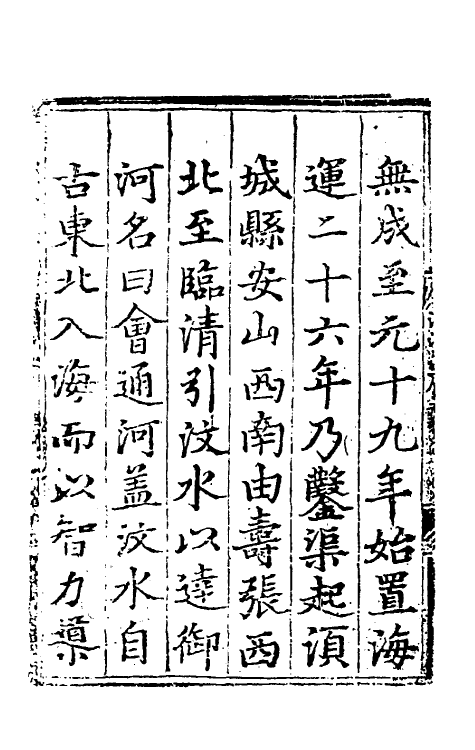 無成至元十九年始置海
運二十六年乃鑿渠起湏
城縣安山西南由壽張西
北至臨清引汶水以達御
河名曰會通河盖汶水自
古東北入海而以智力導